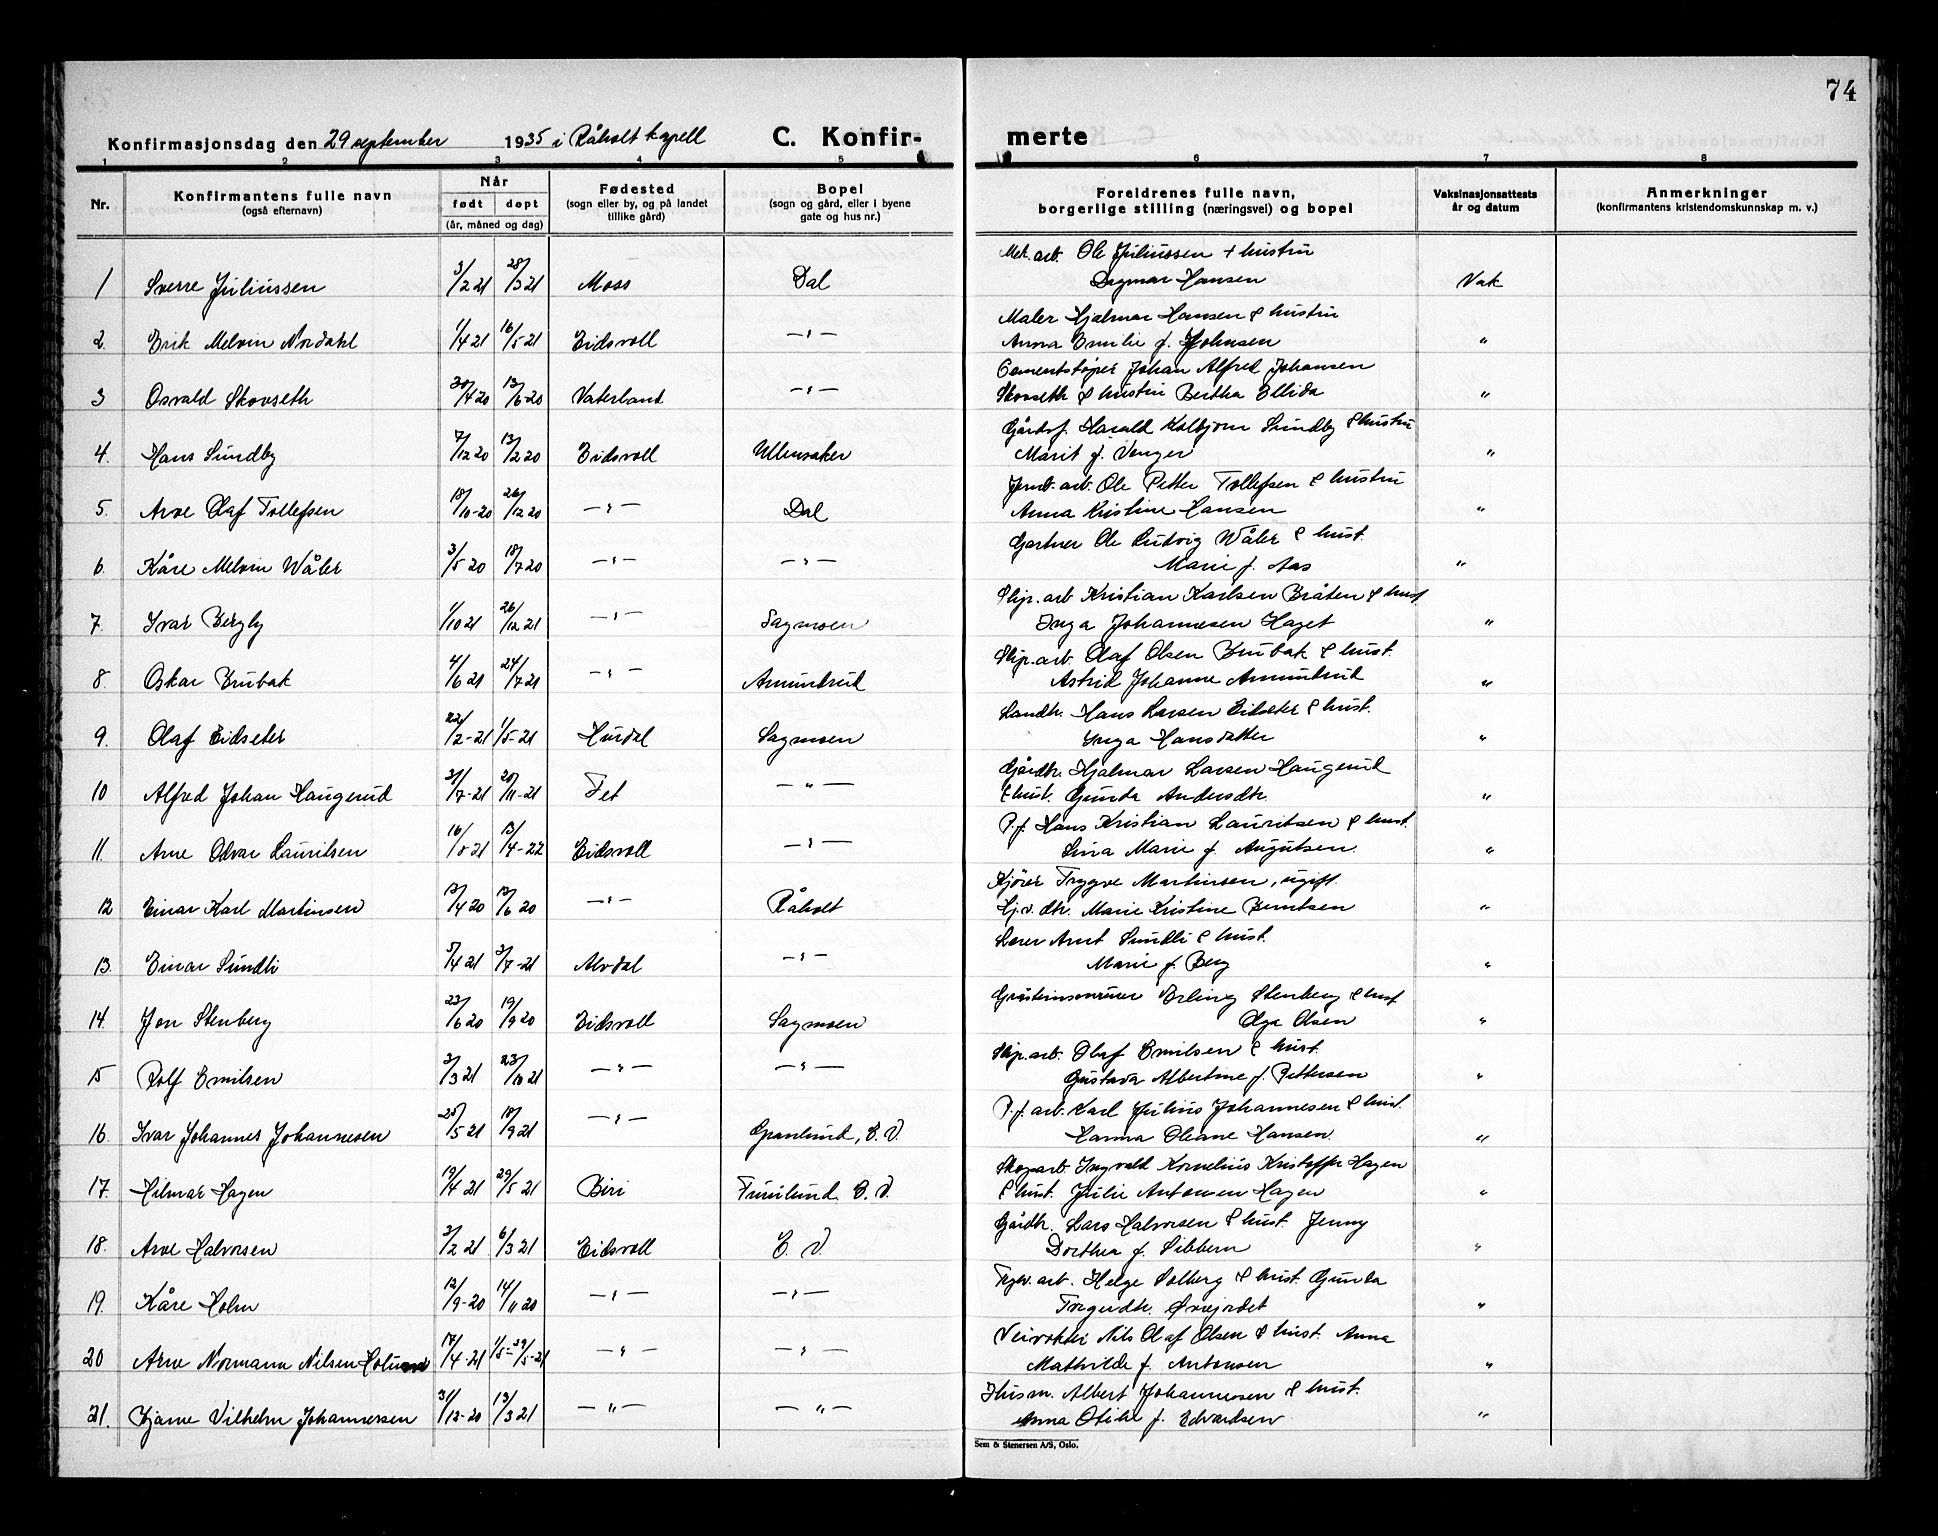 74
Konfirmasjonsdag den 29 september 1935 i Råholt kapell C. Konfir- merte
1 2 3 4 5 6 7 8
Nr. Konfirmantens fulle navn (også efternavn) Når født døpt (år, måned og dag) Fødested (sogn eller by, og på landet tillike gård) Bopel (sogn og gård, eller i byene gate og hus nr.) Foreldrenes fulle navn, borgerlige stilling (næringsvei) og bopel Vaksinasjonsattests år og datum Anmerkninger (konfirmantens kristendomskunnskap m. v.)
Mek. arb. Ole Juliussen + hustru
1 Sverre Juliussen 3/2 21 28/3 21 Moss Dal Dagmar Hansen Vak
Maler Hjalmar Hansen & hustru
2. Erik Melvin Nordahl 1/4 21 16/5 21 Eidsvoll —"— Anna Emilie f. Johnsen "
Cementstøper Johan Alfred Johansen
3 Osvald Skovseth 30/4 20 13/6-20 Vaterland —"— Skovseth & hustru Bertha Ellida "
Gårdsf. Harald Kolbjørn Sundby & hustru
4. Hans Sundby 7/12 20 13/2 20 Eidsvoll Ullensaker Marit f. Venger "
Jernb. arb. Ole Petter Tollefsen & hustru
5. Arve Olaf Tollefsen 18/10-20 26/12 20 —"— Dal Anna Kristine Hansen "
Gartner Ole Ludvig Wåler & hust.
6. Kåre Melvin Wåler 3/5 20 18/7 20 —"— —"— Marie f. Aas "
Slip. arb Kristian Karlsen Bråten & hust.
7. Ivar Bergly 1/10 21 26/12 21 —"— Sagmoen Inga Johannesen Haget "
Slip. arb. Olaf Olsen Brubak & hust.
8. Oskar Brubak 4/6 21 24/7 21 —"— Amundrud Astrid Johanne Amundrud "
Landbr. Hans Larsen Eidseter & hust.
9. Olaf Eidseter 22/2-21 1/5-21 Hurdal Sagmoen Inga Hansdatter "
Gårdbr. Hjalmar Larsen Haugerud
10 Alfred Johan Haugerud 31/7-21 20/11-21 Fet —"— & hust. Gunda Andersdtr. "
P.f. Hans Kristian Lauritsen & hust.
11. Arne Odvar Lauritsen 16/8 21 13/4-22 Eidsvoll —"— Lina Marie f. Augutsen "
Kjører Trygve Martinsen, ugift.
12 Einar Karl Martinsen 13/4 20 13/6 20 —"— Råholt Hj.v. dtr. Marie Kristine Berntsen "
Lærer Arnt Sundli & hust.
13. Einar Sundli 5/4 21 3/7-21 Alvdal —"— Marie f. Berg "
Erling Stenberg & hust
14. Jon Stenberg 23/6 20 19/9 20 Eidsvoll Sagmoen Olga Olsen "
Slip. arb. Olaf Emilsen & hust.
15 Rolf Emilsen 3/3 21 23/10 21 —"— —"— Gustava Albertine f. Pettersen "
P.f. arb. Karl Julius Johannesen & hust.
16. Ivar Johannes Johannesen 25/5 21 18/9 21 —"— Granlund, E.V. Hanna Oleane Hansen "
Skogarb. Ingvald Kornelius Kristoffer Hagen
17. Hilmar Hagen 19/4 21 29/5 21 Biri Furulund E.V. & hust. Julie Antonsen Hagen "
Gårdbr. Lars Halvorsen & hust. Jenny
18. Arve Halvorsen 3/2 21 6/3 21 Eidsvoll E. V. Dorthea f. Sibbern "
arb. Helge Solberg & hust. Gunda
19. Kåre Holm 12/9-20 14/11 20 —"— —"— "
Veivokter Nils Olaf Olsen & hust. Anna
20 Arne Normann Nilsen Holund 17/4-21 1/5-29/5-21 —"— —"— Mathilde f. Antonsen "
Husm. Albert Johannessen & hust.
21. Bjarne Vilhelm Johannessen 31/12-20 13/3 21 —"— —"— Anna Otilie f. Edvardsen "
Sem & Stenersen A/S, Oslo.